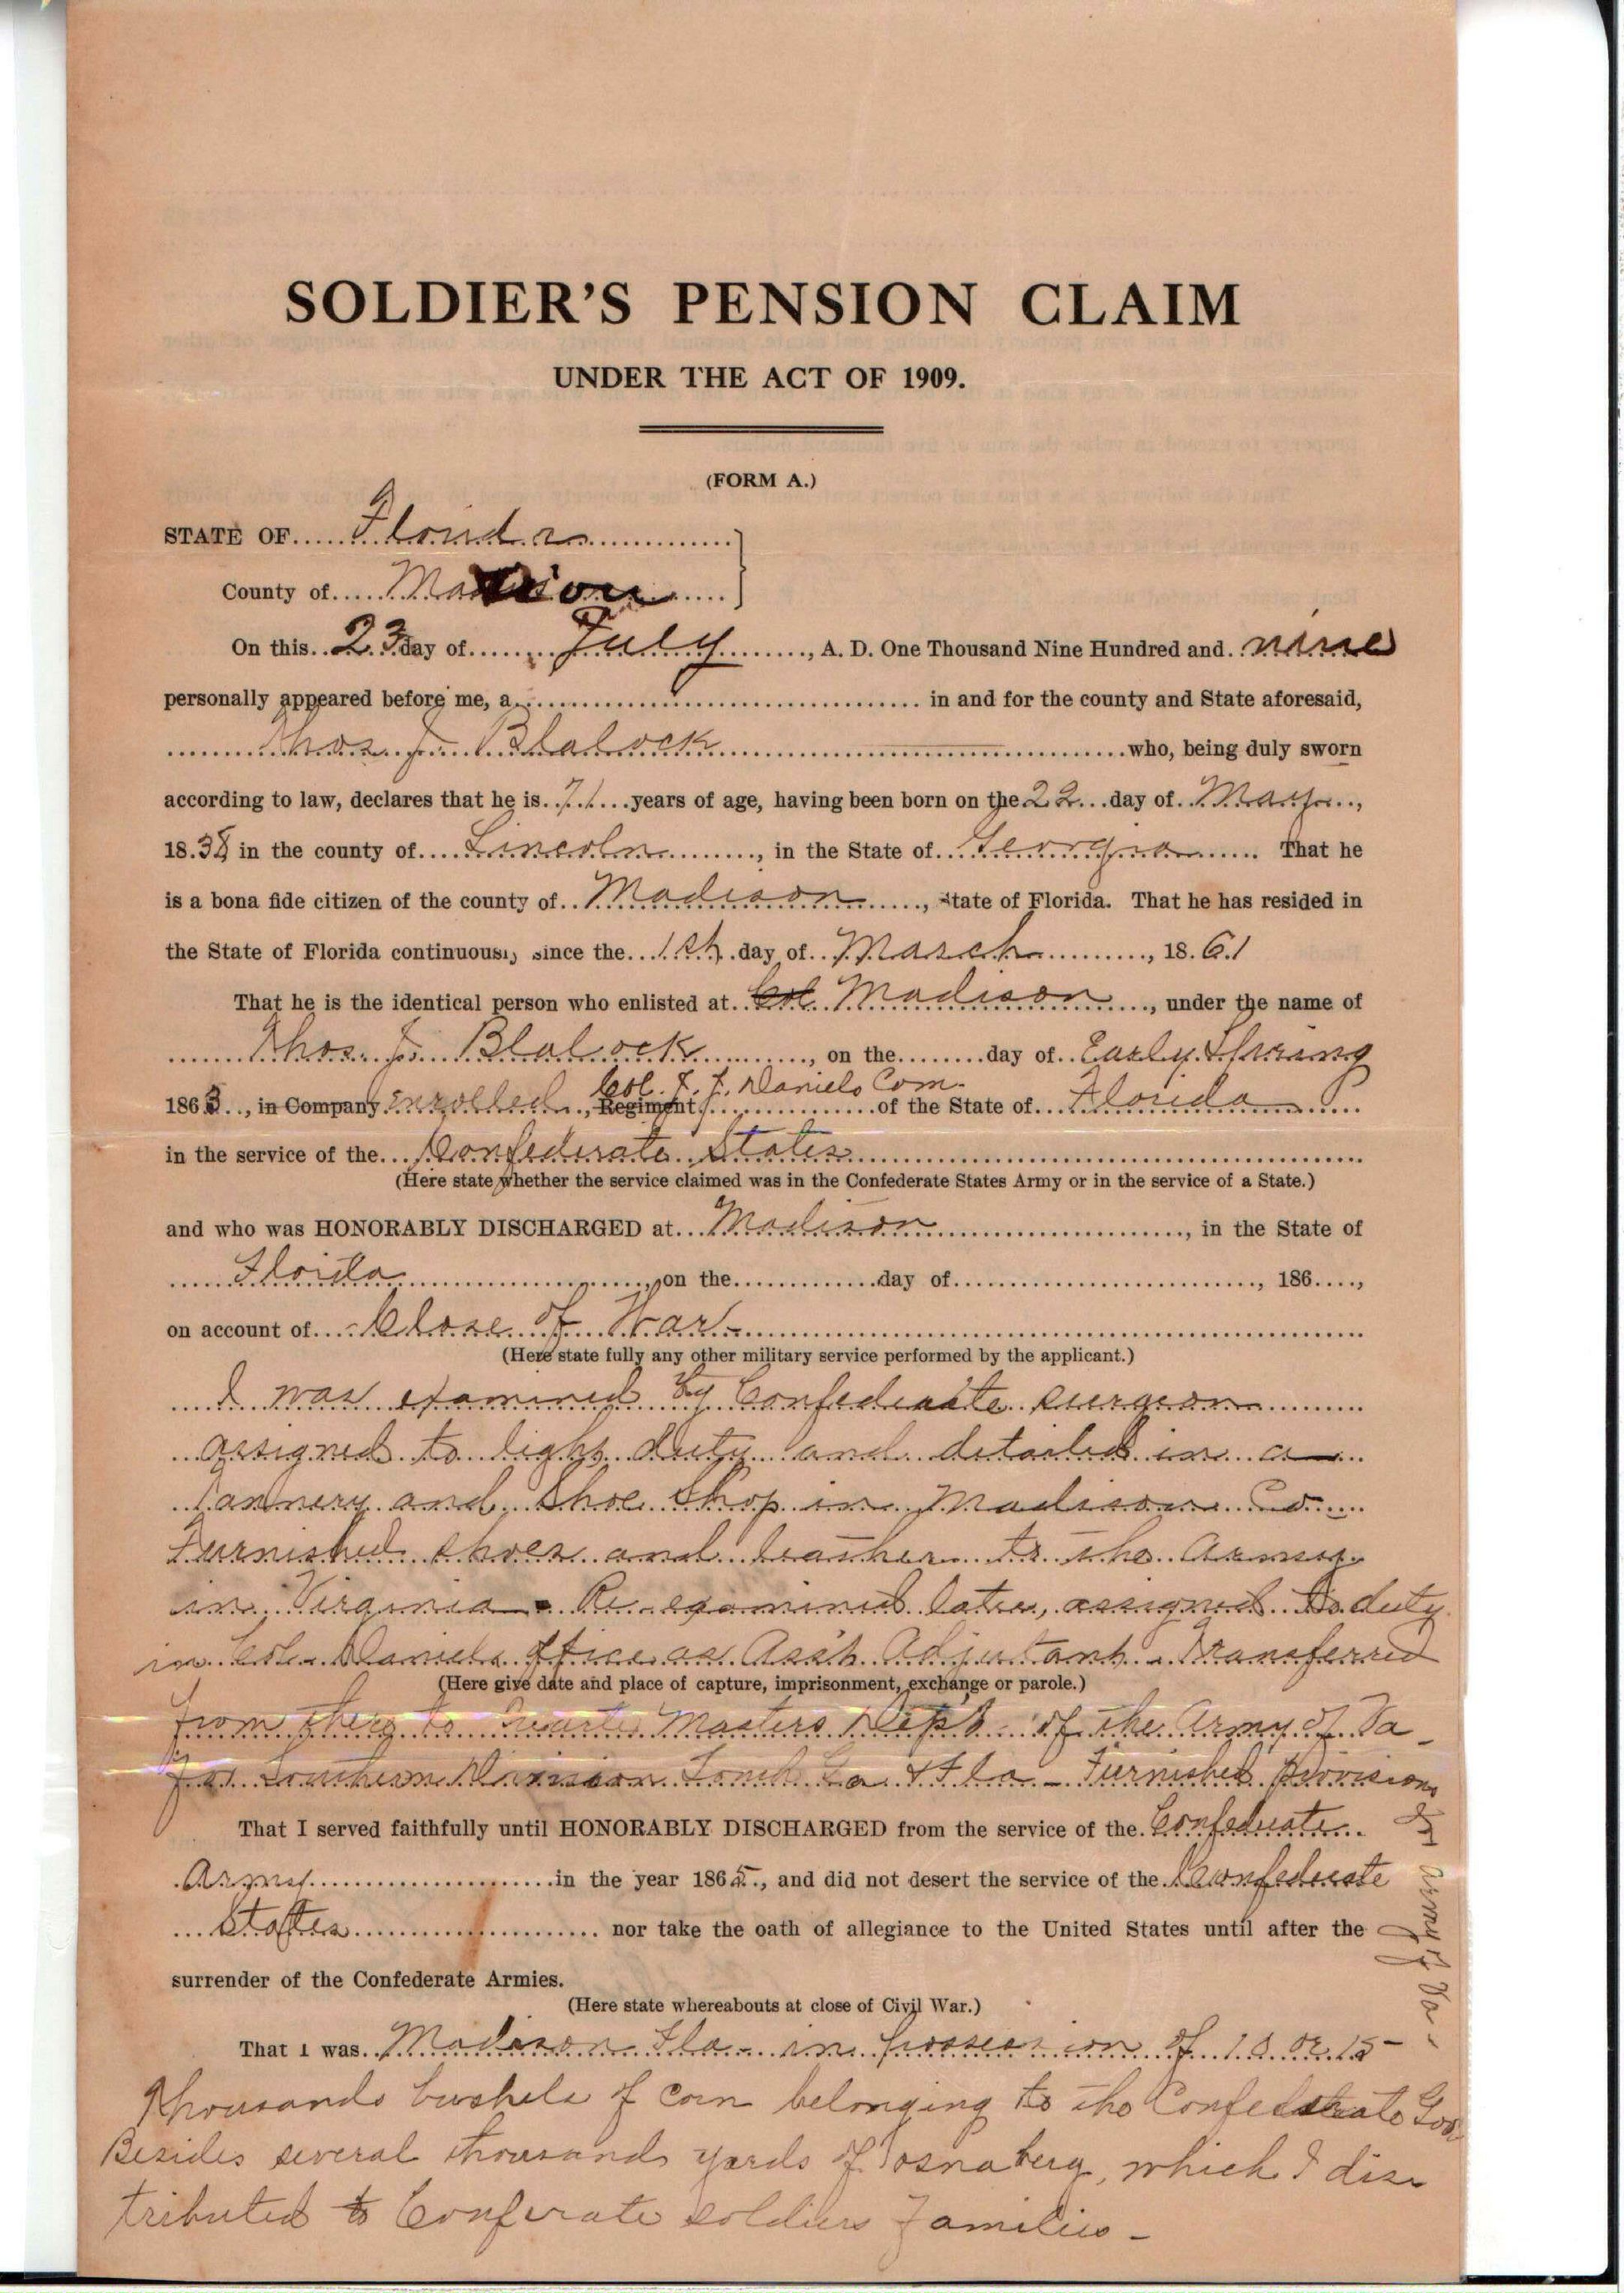 SOLDIER'S PENSION CLAIM
UNDER THE ACT OF 1909.
(FORM A.)
STATE OF Florida
County of Madison
On this 23 day of July, A. D. One Thousand Nine Hundred and nine
personally appeared before me, a in and for the county and State aforesaid,
Thos. J. Blalock who, being duly sworn
according to law, declares that he is 71 years of age, having been born on the 22 day of May,
1838 in the county of Lincoln, in the State of Georgia. That he
is a bona fide citizen of the county of Madison, State of Florida. That he has resided in
the State of Florida continuously since the 1st day of March, 1861
That he is the identical person who enlisted at Col. Madison, under the name of
Thos. J. Blalock, on the day of Early Spring
1863, in Company enrolled, Regiment Col. J. J. Daniels Com. of the State of Florida
in the service of the Confederate States
(Here state whether the service claimed was in the Confederate States Army or in the service of a State.)
and who was HONORABLY DISCHARGED at Madison, in the State of
Florida, on the day of, 186,
on account of Close of War
(Here state fully any other military service performed by the applicant.)
I was examined by Confederate surgeon
assigned to light duty and detailed in a
Tannery and Shoe Shop in Madison Co
Furnished shoes and leather to the Army
in Virginia - Re-examined later, assigned to duty
in Col. Daniels office as Ass't Adjutant - Transferred
(Here give date and place of capture, imprisonment, exchange or parole.)
from there to Quarter Masters Dept of the Army of Va
for Southern Division South Ga & Fla - Furnished provisions
for Army of Va -
That I served faithfully until HONORABLY DISCHARGED from the service of the Confederate
Army in the year 1865, and did not desert the service of the Confederate
States nor take the oath of allegiance to the United States until after the
surrender of the Confederate Armies.
(Here state whereabouts at close of Civil War.)
That I was Madison Fla - in possession of 10 or 15
thousands bushels of corn belonging to the Confederate Gov
Besides several thousands yards of osnaberg, which I dis
tributed to Conferate soldiers families -